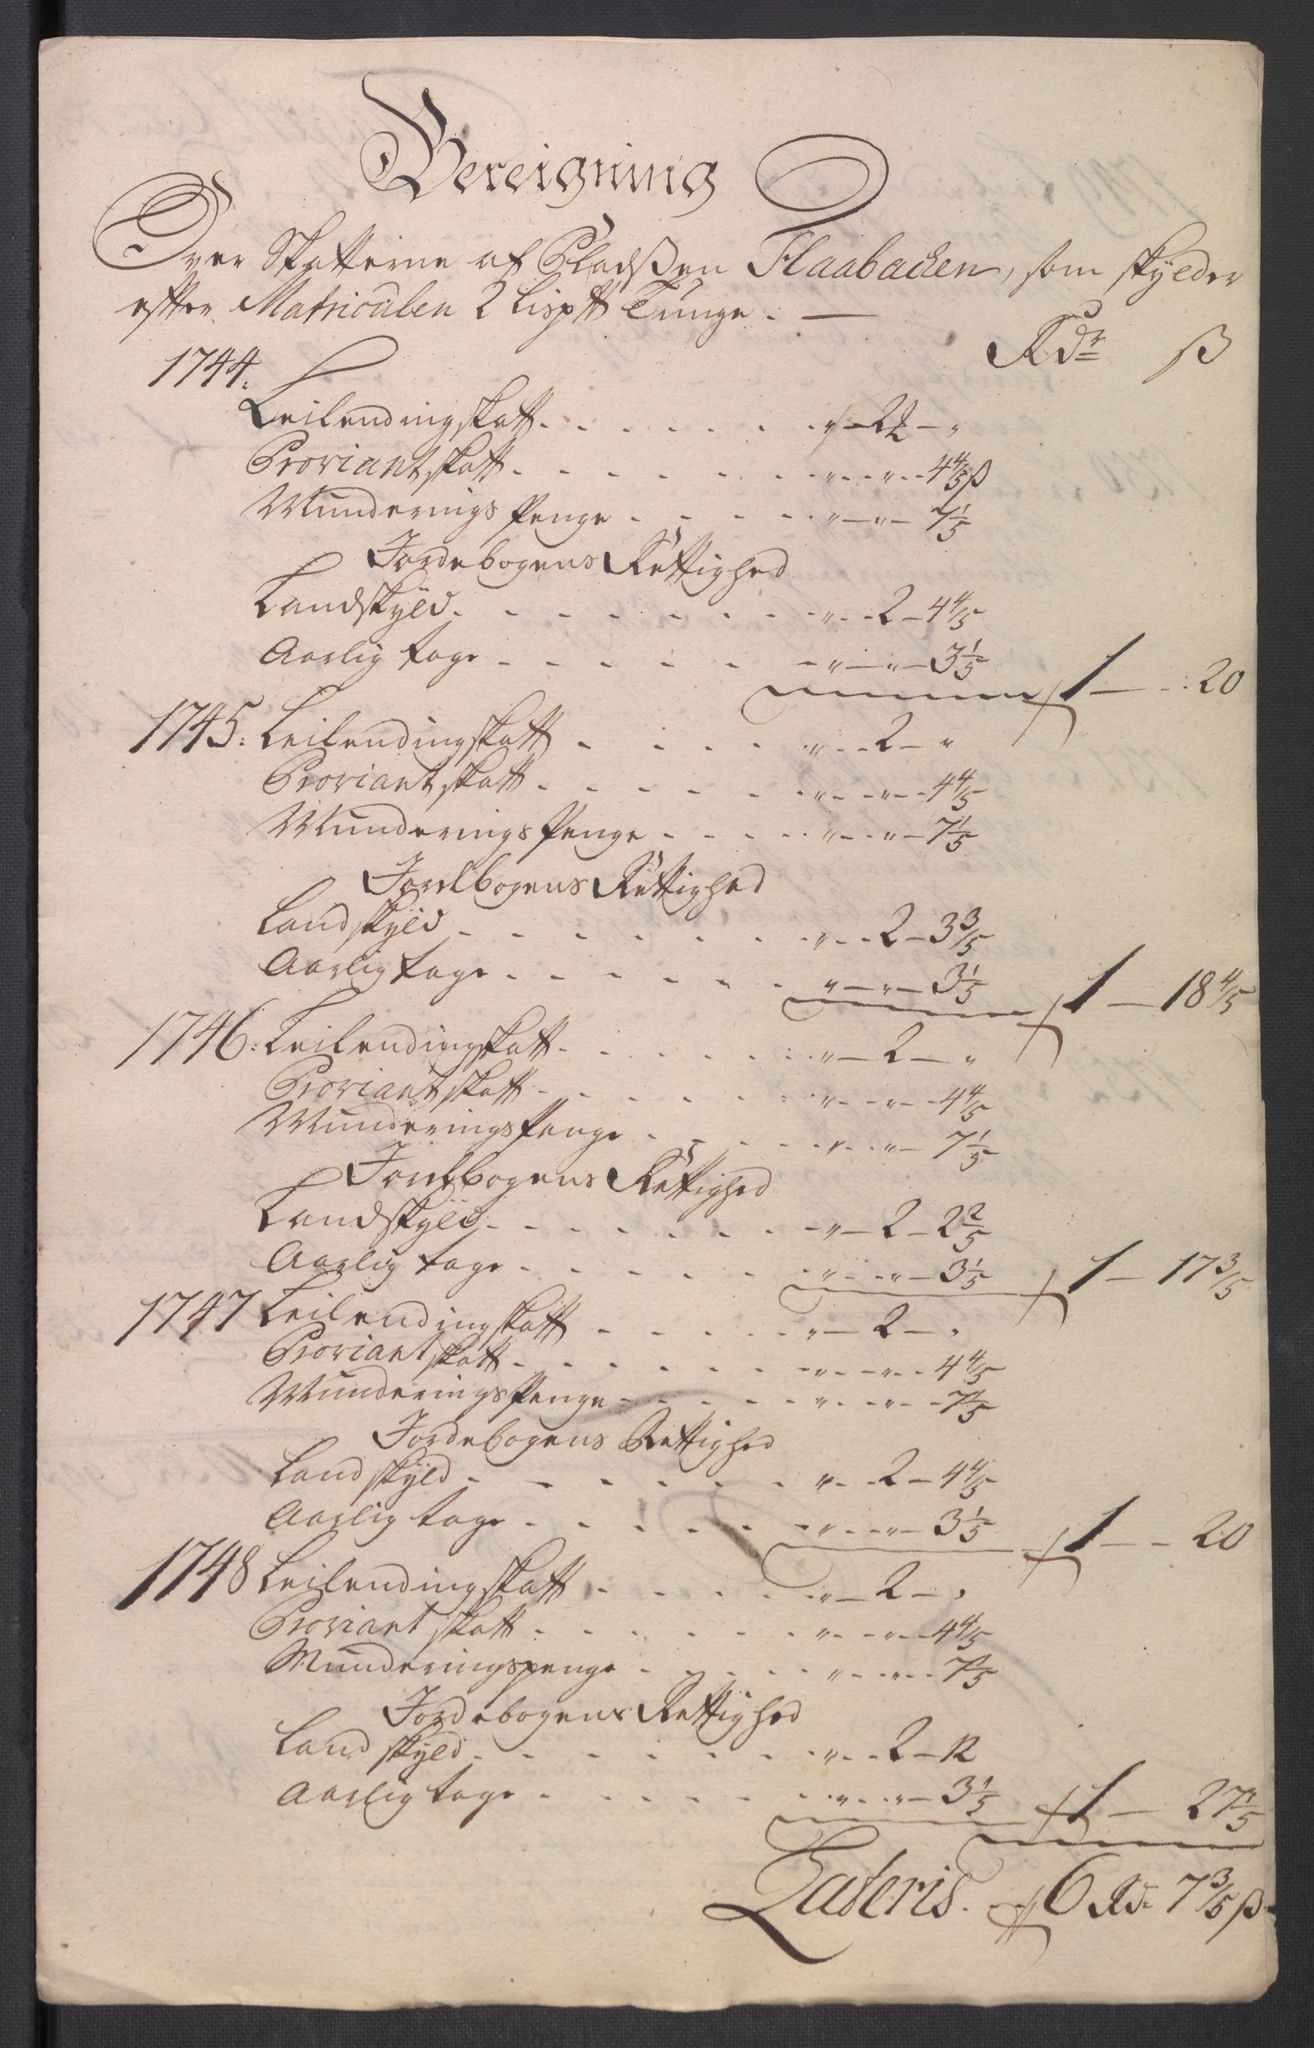 Bereigning
Over Skatterne af Pladßen Haabachen, som skylder
efter Matriculen 2 Lisptt Tunge. —
Rdr ß
1744:
Leilendingskatt . . . . . . „ — 2 — „
Proviantskatt . . . . . . „ - „ - 4 4/5 ß
Munderings Penge . . . . . „ — „ — 7 1/5
Jordebogens Rettighed
Landskyld . . . . . . . „ - 2 — 4 4/5
Aarlig tage . . . . . . „ — „ — 3 1/5 1 — 20
1745: Leilendingskatt . . . . „ - 2 — „
Proviantskatt . . . . . . „ — „ - 4 4/5
Munderings Penge . . . . . „ — „ — 7 1/5
Jordebogens Rettighed
Landskyld . . . . . . . „ - 2 — 3 3/5
Aarlig tage . . . . . . „ — „ — 3 1/5 1 — 18 4/5
1746: Leilendingskatt . . . . . „ — 2 — „
Proviantskatt . . . . . . „ - „ — 4 4/5
Munderings Penge . . . . . „ - „ — 7 1/5
Jordebogens Rettighed
Landskyld . . . . . . . „ — 2 — 2 2/5
Aarlig tage . . . . . . „ - „ — 3 1/5 1 — 17 3/5
1747 Leilendingskatt . . . . . „ — 2 — „
Proviantskatt . . . . . . „ — „ - 4 4/5
Munderings Penge . . . . . „ — „ - 7 1/5
Jordebogens Rettighed
Landskyld . . . . . . . „ - 2 — 4 4/5
Aarlig tage . . . . . . „ - „ — 3 1/5 1 — 20
1748 Leilendingskatt . . . . . „ — 2 — „
Proviantskatt . . . . . . „ - „ - 4 4/5
Munderingspenge . . . . . „ — „ - 7 1/5
Jordebogens Rettighed
Landskyld . . . . . . . „ - 2 — 12
Aarlig tage . . . . . . „ - „ — 3 1/5 1 — 27 1/5
Lateris . 6 Rd: 7 3/5 ß